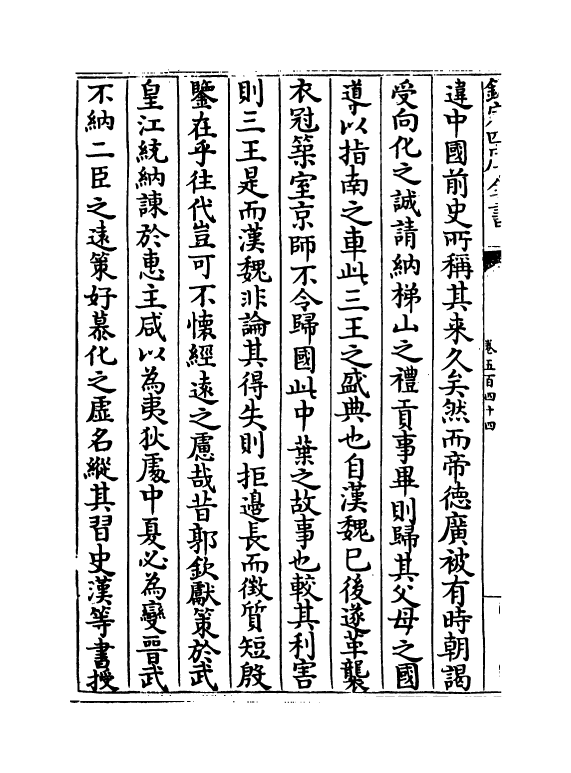 欽定四庫全書
卷五百四十四
違中國前史所稱其來久矣然而帝徳廣被有時朝謁
受向化之誠請納梯山之禮貢事畢則歸其父母之國
導以指南之車此三王之盛典也自漢魏已後遂革襲
衣冠築室京師不令歸國此中葉之故事也較其利害
則三王是而漢魏非論其得失則拒邉長而徴質短殷
鑒在乎往代豈可不懷經逺之慮哉昔郭欽獻策於武
皇江統納諫於惠主咸以為夷狄處中夏必為變晋武
不納二臣之逺策好慕化之虛名縱其習史漢等書授